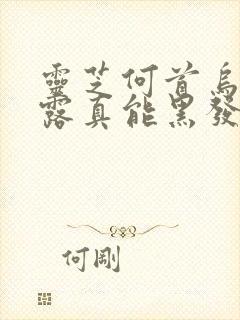 靈芝何首烏
露真能黑發
何剛